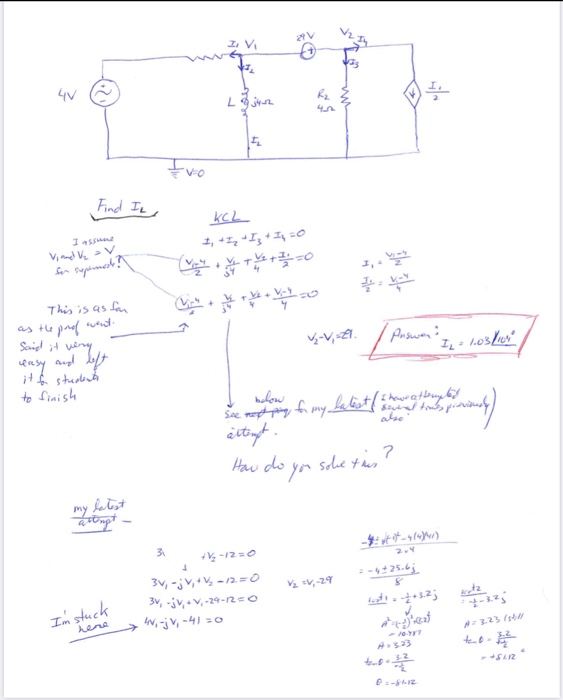 I₁ V₁
29V
V₂ I₄
I₂
I₃
4V
L j4Ω
R₂
4Ω
I₁/2
I_L
V=0
Find I_L
KCL
I₁ + I₂ + I₃ + I₄ = 0
I assume
V₁ and V₂ = V
for supernode?
(V₁-4)/2 + V₁/j4 + V₂/4 + I₁/2 = 0
I₁ = (V₁-4)/2
(V₁-4)/2 + V₁/j4 + V₂/4 + (V₁-4)/4 = 0
I₁/2 = (V₁-4)/4
This is as far
as the prof went.
Said it very
easy and left
it for students
to finish
V₂-V₁=29.
Answer:
I_L = 1.03/104°
below
see next pg for my latest (I have attempted
several times previously
also)
attempt.
How do you solve this?
my latest
attempt -
+V₂ -12=0
3V₁ -jV₁ +V₂ -12=0
V₂ = V₁-29
3V₁ -jV₁ +V₁ -29-12=0
I'm stuck
here
4V₁ -jV₁ -41 =0
2·4
= -4 ± 25.6j
8
root 1 = -1/2 +3.2j
root 2
= -1/2 - 3.2j
A = 3.23
tan θ = 3.2
θ = -81.12